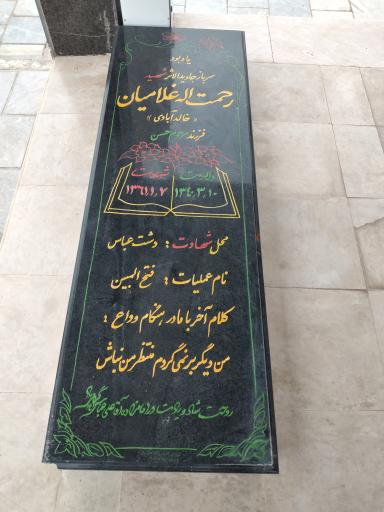 یادبود
سرباز جاویدالاثر شهید
رحمت اله غلامیان
«خالدآبادی»
فرزند مرحوم حسن
ولادت شهادت
۱۳۴۰,۳,۱۰ ۱۳۶۱,۱,۷
محل شهادت : دشت عباس
نام عملیات : فتح المبین
کلام آخر با مادر هنگام وداع :
من دیگر برنمی گردم منتظر من نباش
روحت شاد و یادت